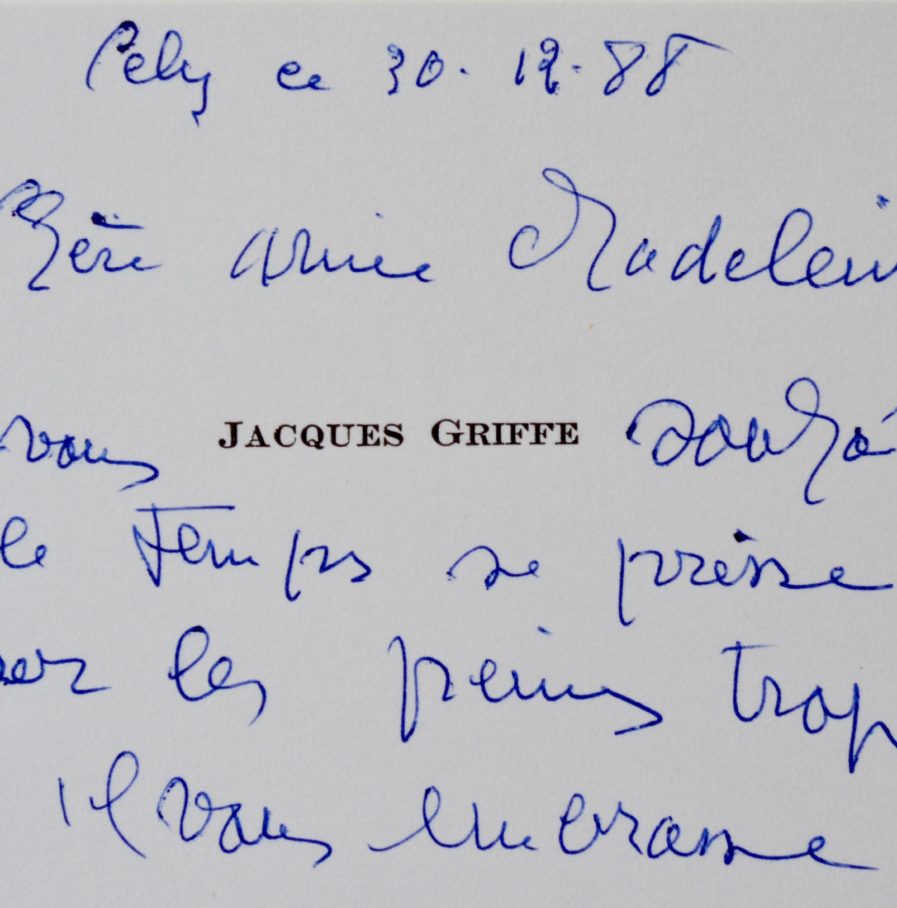 Cely ce 30.12.88
Chère Amie Madelein
vous JACQUES GRIFFE souhai
le temps se presse
ser les peines trop
il vous embrasse